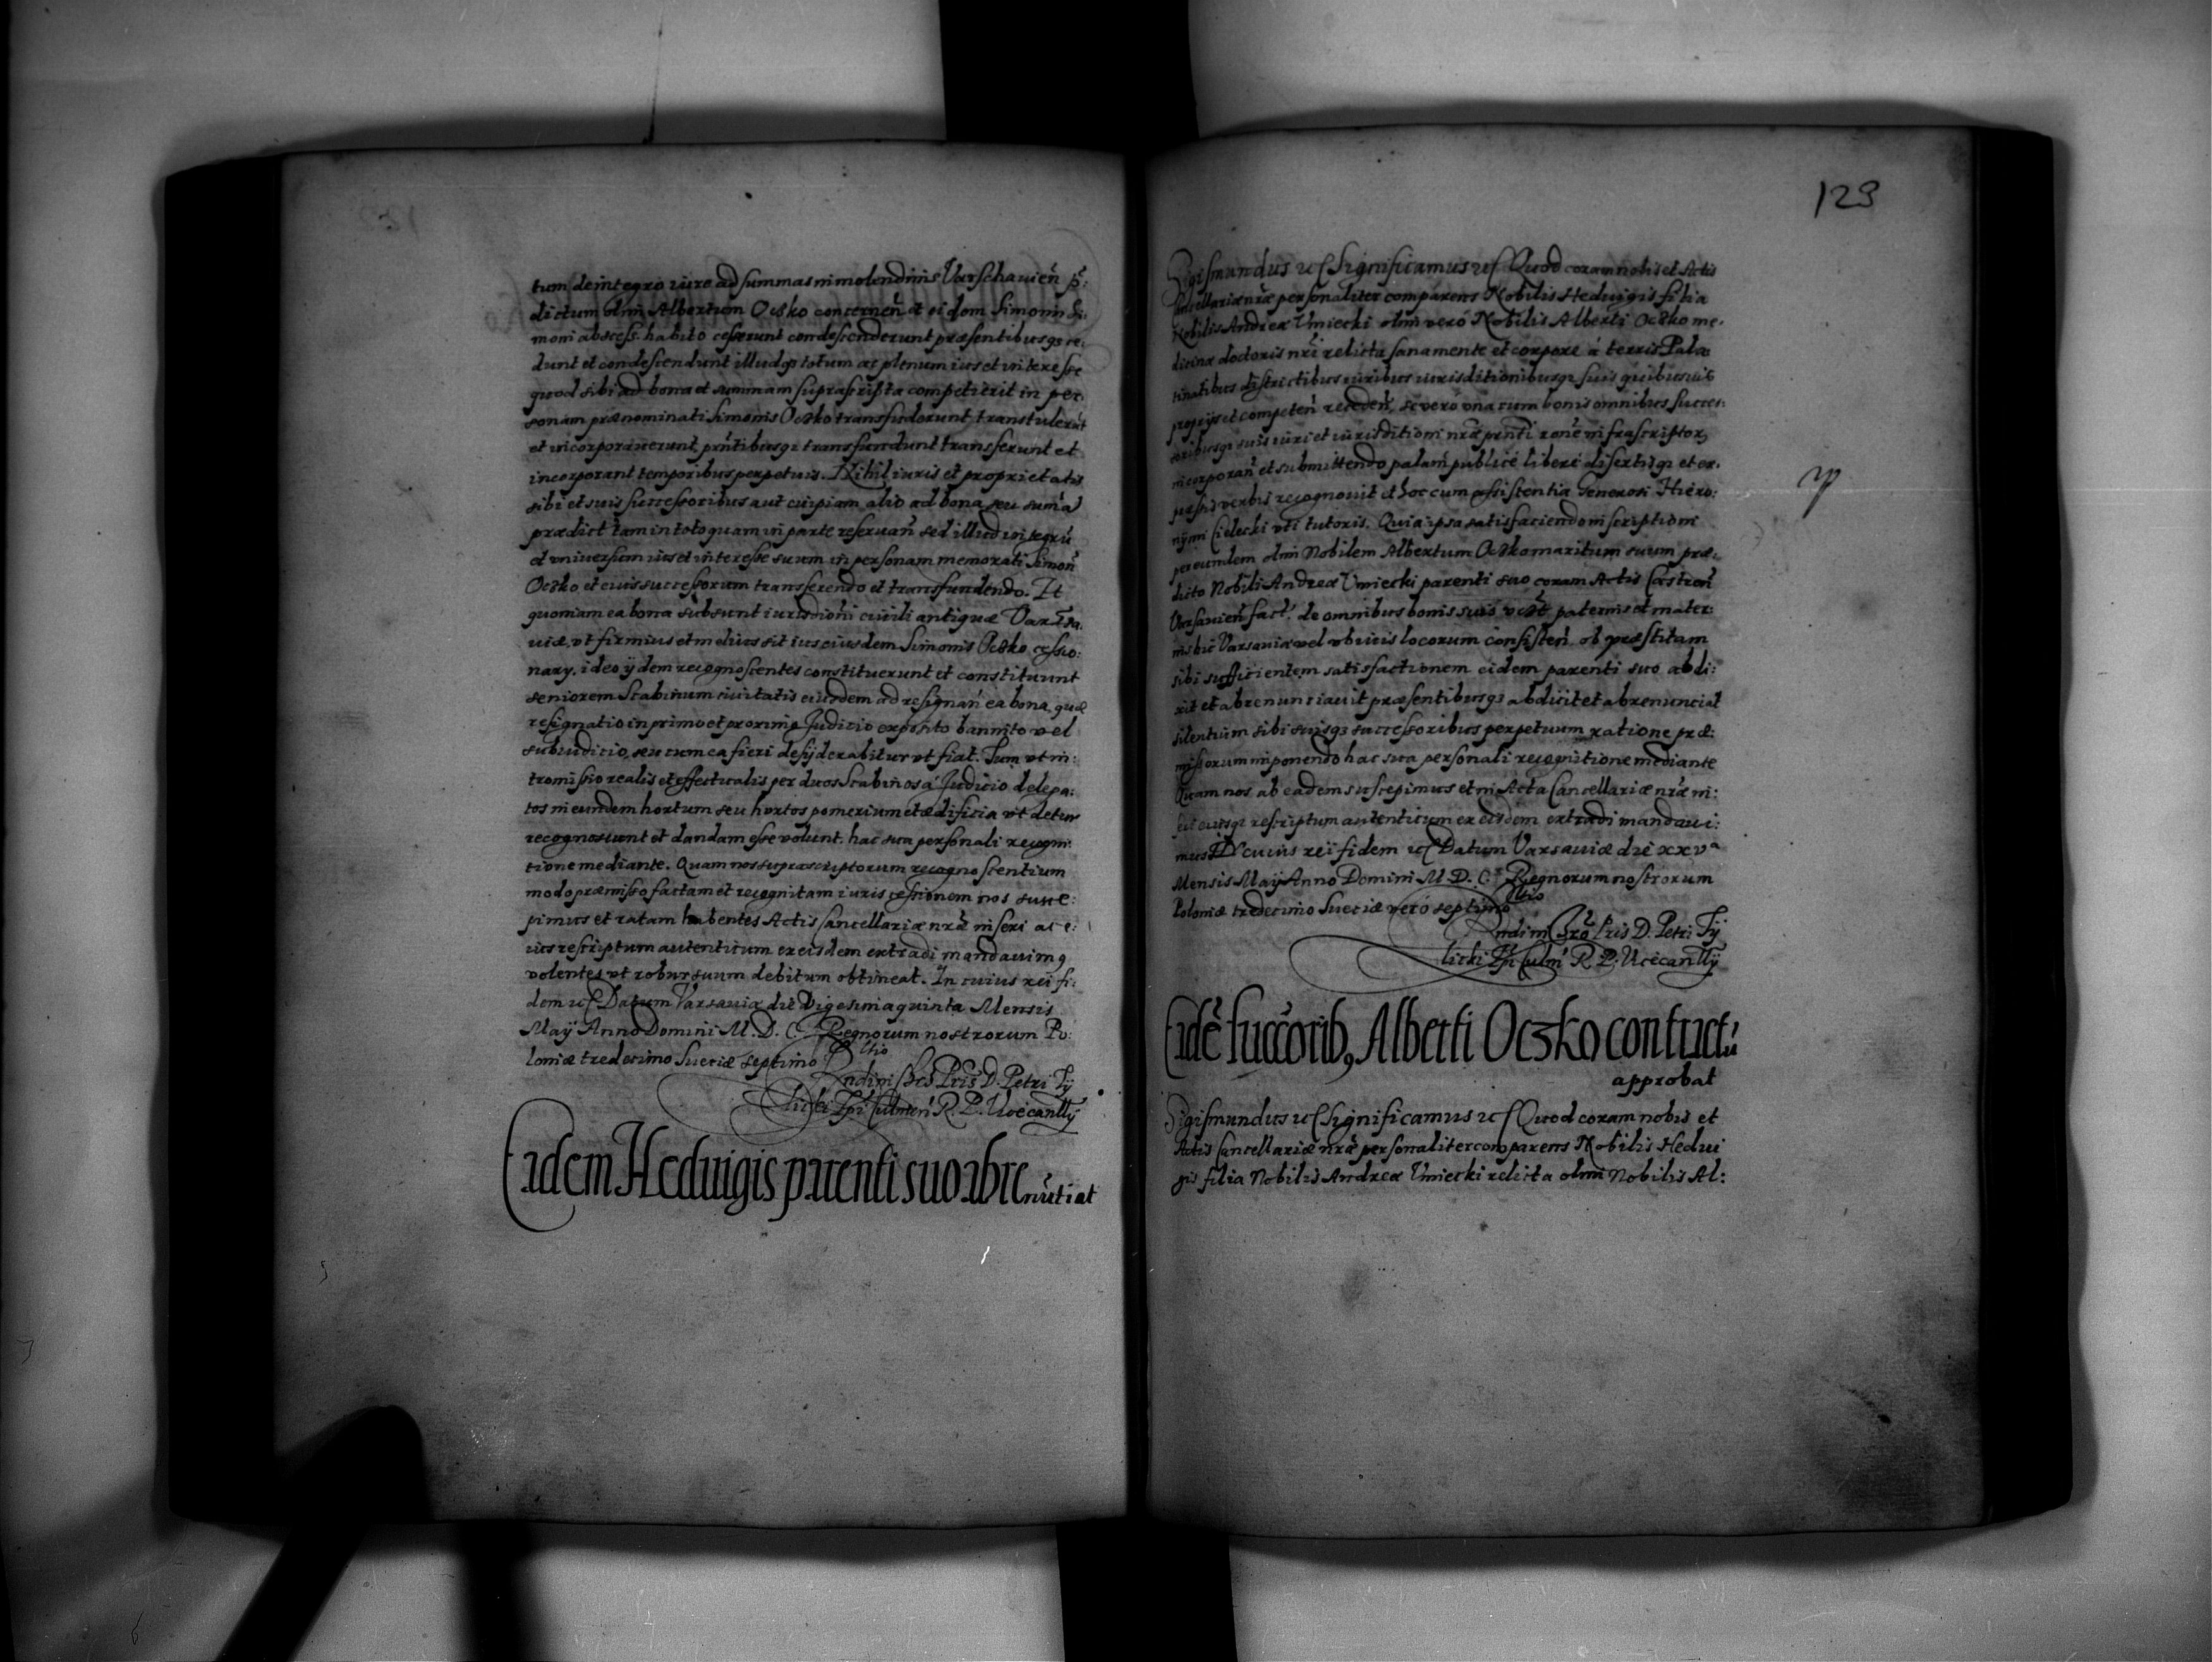 tum de integro iure ad summas in molendinis Varschavien̄ p̄:
dictum olim Albertum Oczko concernen̄ et eidem Simoni Si:
moni abscess. habito cesserunt condescenderunt præsentibusq3 ce:
dunt et condescendunt illudq3 totum ac plenum ius et interesse
quod sibi ad bona et summam suprascripta competierit in per:
sonam prænominati Simonis Oczko transfuderunt transtulerūt
et incorporaverunt pn̄tibusq3 transfundunt transferunt et
incorporant temporibus perpetuis. Nihil iuris et proprietatis
sibi et suis successoribus aut cuipiam alio ad bona seu sumā
prædict tam in toto quam in parte reservan̄ sed illud integrū
et universum ius et interesse suum in personam memorati Simon̄
Oczko et eius successorum transferendo et transfundendo. Et
quoniam ea bona subsunt iurisdioni civili antiquæ Varsa:
viæ, ut firmius et melius sit ius eiusdem Simonis Oczko cessio:
nary. ideo ijdem recognoscentes constituerunt et constituunt
seniorem Scabinum civitatis eiusdem ad resignan̄ ea bona, quæ
resignatio in primo et proximo Judicio exposito bannito vel
subiudicio, seu cum ea fieri desyderabitur ut fiat. Tum ut in:
tromissio realis et effectualis per duos Scabinos á Judicio delega:
tos in eundem hortum seu hortos pomerium et ædificia ut detur
recognoscunt et dandam esse volunt. hac sua personali recogni:
tione mediante. Quam nos suprascriptorum recognoscentium
modo præmisso factam et recognitam iuris cessionem nos susce:
pimus et ratam habentes Actis Cancellariæ nr̄æ inseri ac e:
ius rescriptum autenticum ex eisdem extradi mandavim9
volentes ut robur suum debitum obtineat. In cuius rei fi:
dem etc Datum Varsaviæ die Vigesima quinta Mensis
Maÿ Anno Domini M. D. C. Regnorum nostrorum Po:
loniæ tredecimo Sueciæ septimo
Rltio
ndimi Petri Tÿ
licki Epi Culmen̄ R. P. Vicecanllÿ
Eadem Heduigis parenti suo abrenūtiat
129
Sigismundus etc Significamus etc Quod coram nobis et Actis
Cancellariæ nr̄æ personaliter comparens Nobilis Heduigis filia
Nobilis Andreæ Umiecki olim veró Nobilis Alberti Oczko me:
dicinæ doctoris nr̄i relicta sana mente et corpore á terris Pala
tinatibus districtibus iuribus iurisditionibusq3 suis quibusvis
proprÿs et competen̄ receden̄, se veró una cum bonis omnibus succes:
soribusq3 suis iuri et iurisditioni nr̄æ pn̄ti rone infrascriptor
incorporan̄ et submittendo palam publicé liberé disertisq3 et ex:
pressis verbis recognovit et hoc cum assistentia Generosi Hiero:
nÿmi Cielecki uti tutoris. Quia ipsa satisfaciendo inscriptioni
per eundem olim Nobilem Albertum Oczko maritum suum præ:
dicto Nobili Andreæ Umiecki parenti suo coram Actis Castren̄
Varsavien̄ fact. de omnibus bonis suis paternis et mater:
nis hic Varsaviæ vel ubivis locorum consisten̄. ob præstitam
sibi sufficientem satisfactionem eidem parenti suo abdi:
xit et abrenunciavit præsentibusq3 abdicit et abrenunciat
silentium sibi suisq3 successoribus perpetuum ratione præ:
missorum imponendo hac sua personali recognitione mediante
Quam nos ab eadem suscepimus et in Acta Cancellariæ nr̄æ in:
eiusq3 rescriptum autenticum ex eisdem extradi mandavi:
mus In cuius rei fidem etc Datum Varsaviæ die xxva
Mensis Maÿ Anno Domini M. D. C. Regnorum nostrorum
Poloniæ tredecimo Sueciæ veró septimo
Rltio
ndimi Pris D. Petri Tÿ
licki Epi Culm̄ R. P. Vicecanllÿ
Eadē succorib9 Alberti Oczko contractū
approbat
Sigismundus etc Significamus etc Quod coram nobis et
Actis Cancellariæ nr̄æ personaliter comparens Nobilis Hedui
gis filia Nobilis Andreæ Umiecki relicta olim Nobilis Al: